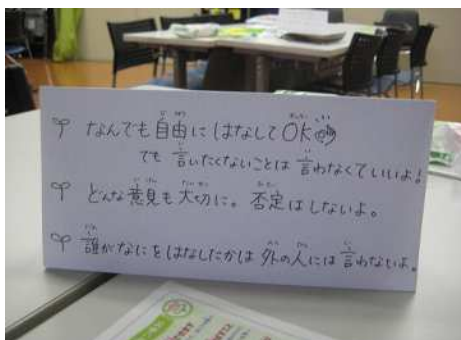 なんでも自由にはなしてOK
でも言いたくないことは言わなくていいよ!
どんな意見も大切に。否定はしないよ。
誰がなにをはなしたかは外の人には言わないよ。